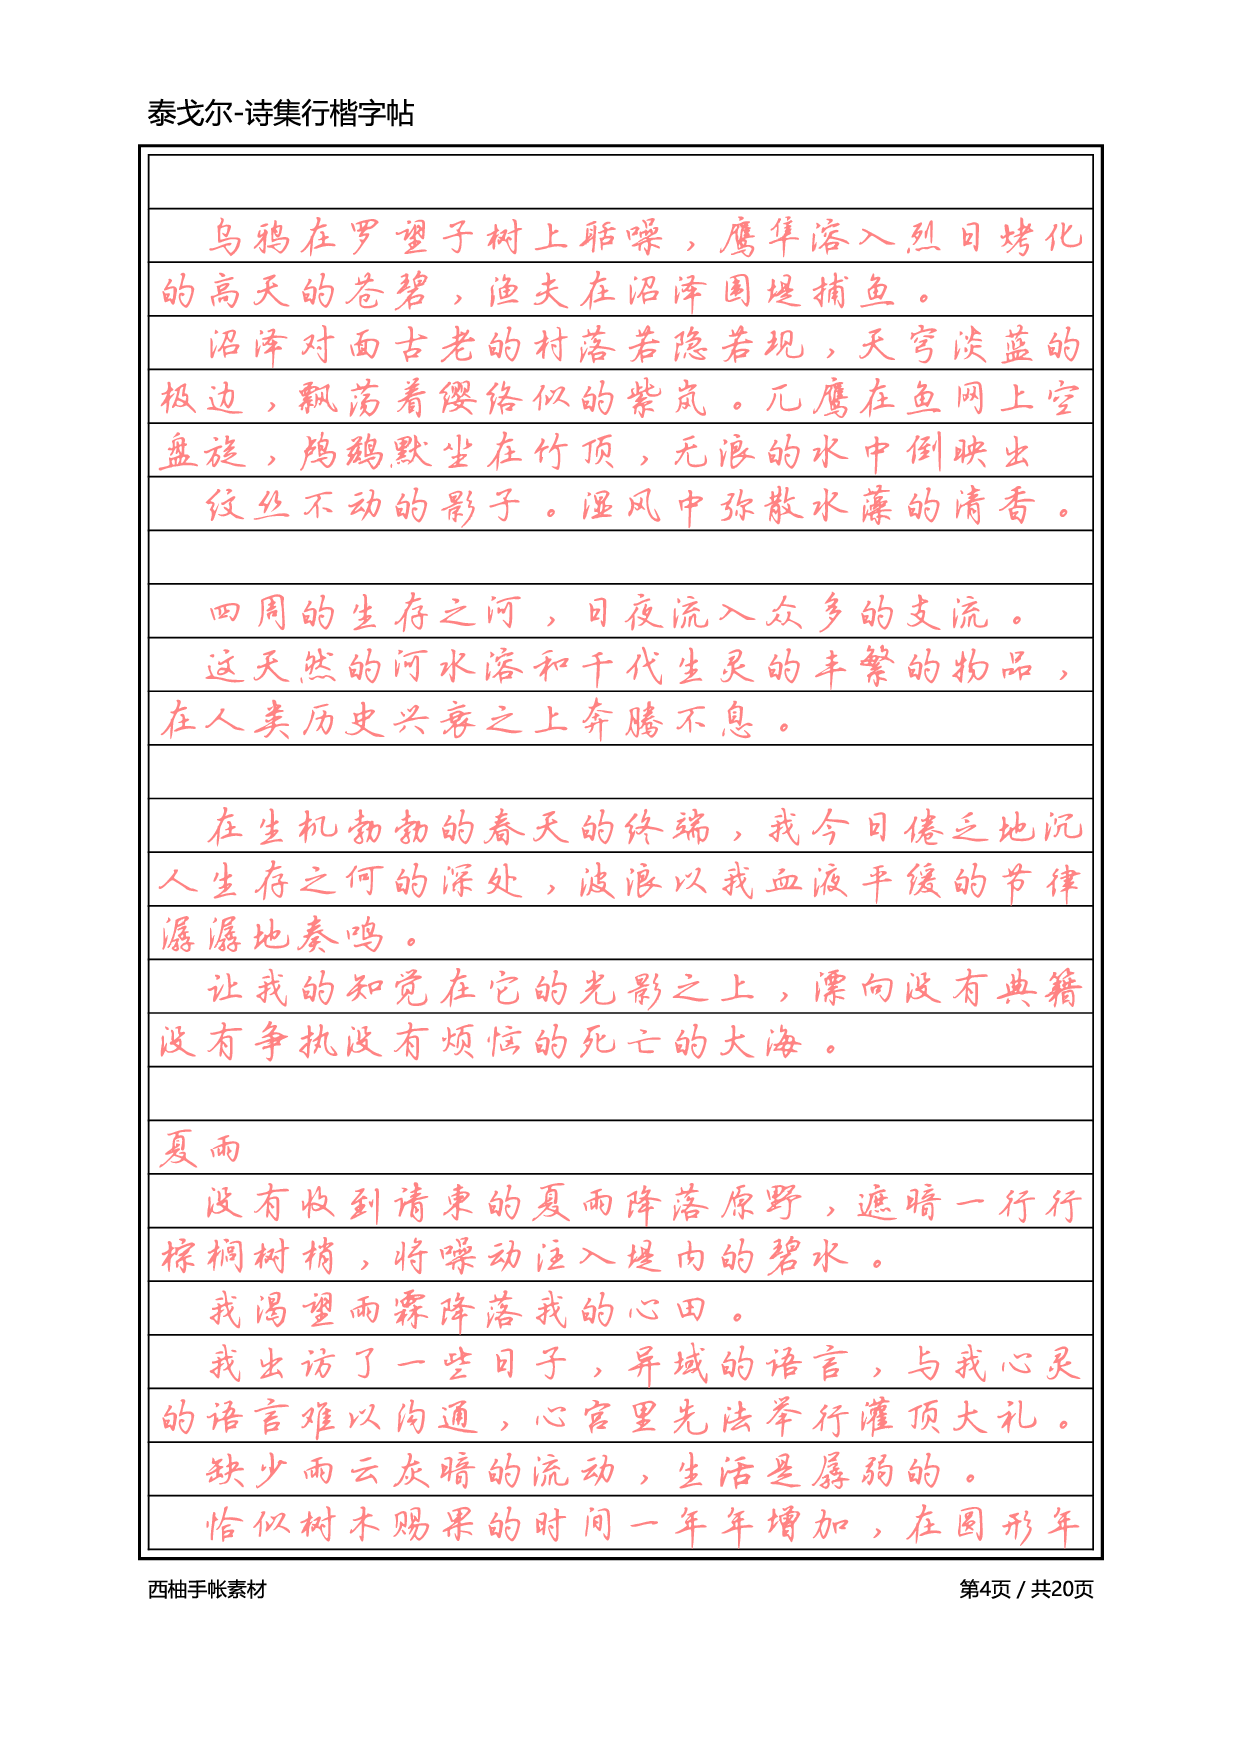 泰戈尔-诗集行楷字帖
乌鸦在罗望子树上聒噪，鹰隼溶入烈日烤化
的高天的苍碧，渔夫在沼泽围堤捕鱼。
沼泽对面古老的村落若隐若现，天穹淡蓝的
极边，飘荡着缨络似的紫岚。兀鹰在鱼网上空
盘旋，鸬鹚默坐在竹顶，无浪的水中倒映出
纹丝不动的影子。湿风中弥散水藻的清香。
四周的生存之河，日夜流入众多的支流。
这天然的河水溶和千代生灵的丰繁的物品，
在人类历史兴衰之上奔腾不息。
在生机勃勃的春天的终端，我今日倦乏地沉
人生存之何的深处，波浪以我血液平缓的节律
潺潺地奏鸣。
让我的知觉在它的光影之上，漂向没有典籍
没有争执没有烦恼的死亡的大海。
夏雨
没有收到请柬的夏雨降落原野，遮暗一行行
棕榈树梢，将噪动注入堤内的碧水。
我渴望雨霖降落我的心田。
我出访了一些日子，异域的语言，与我心灵
的语言难以沟通，心宫里先法举行灌顶大礼。
缺少雨云灰暗的流动，生活是孱弱的。
恰似树木赐果的时间一年年增加，在圆形年
西柚手帐素材
第4页 / 共20页